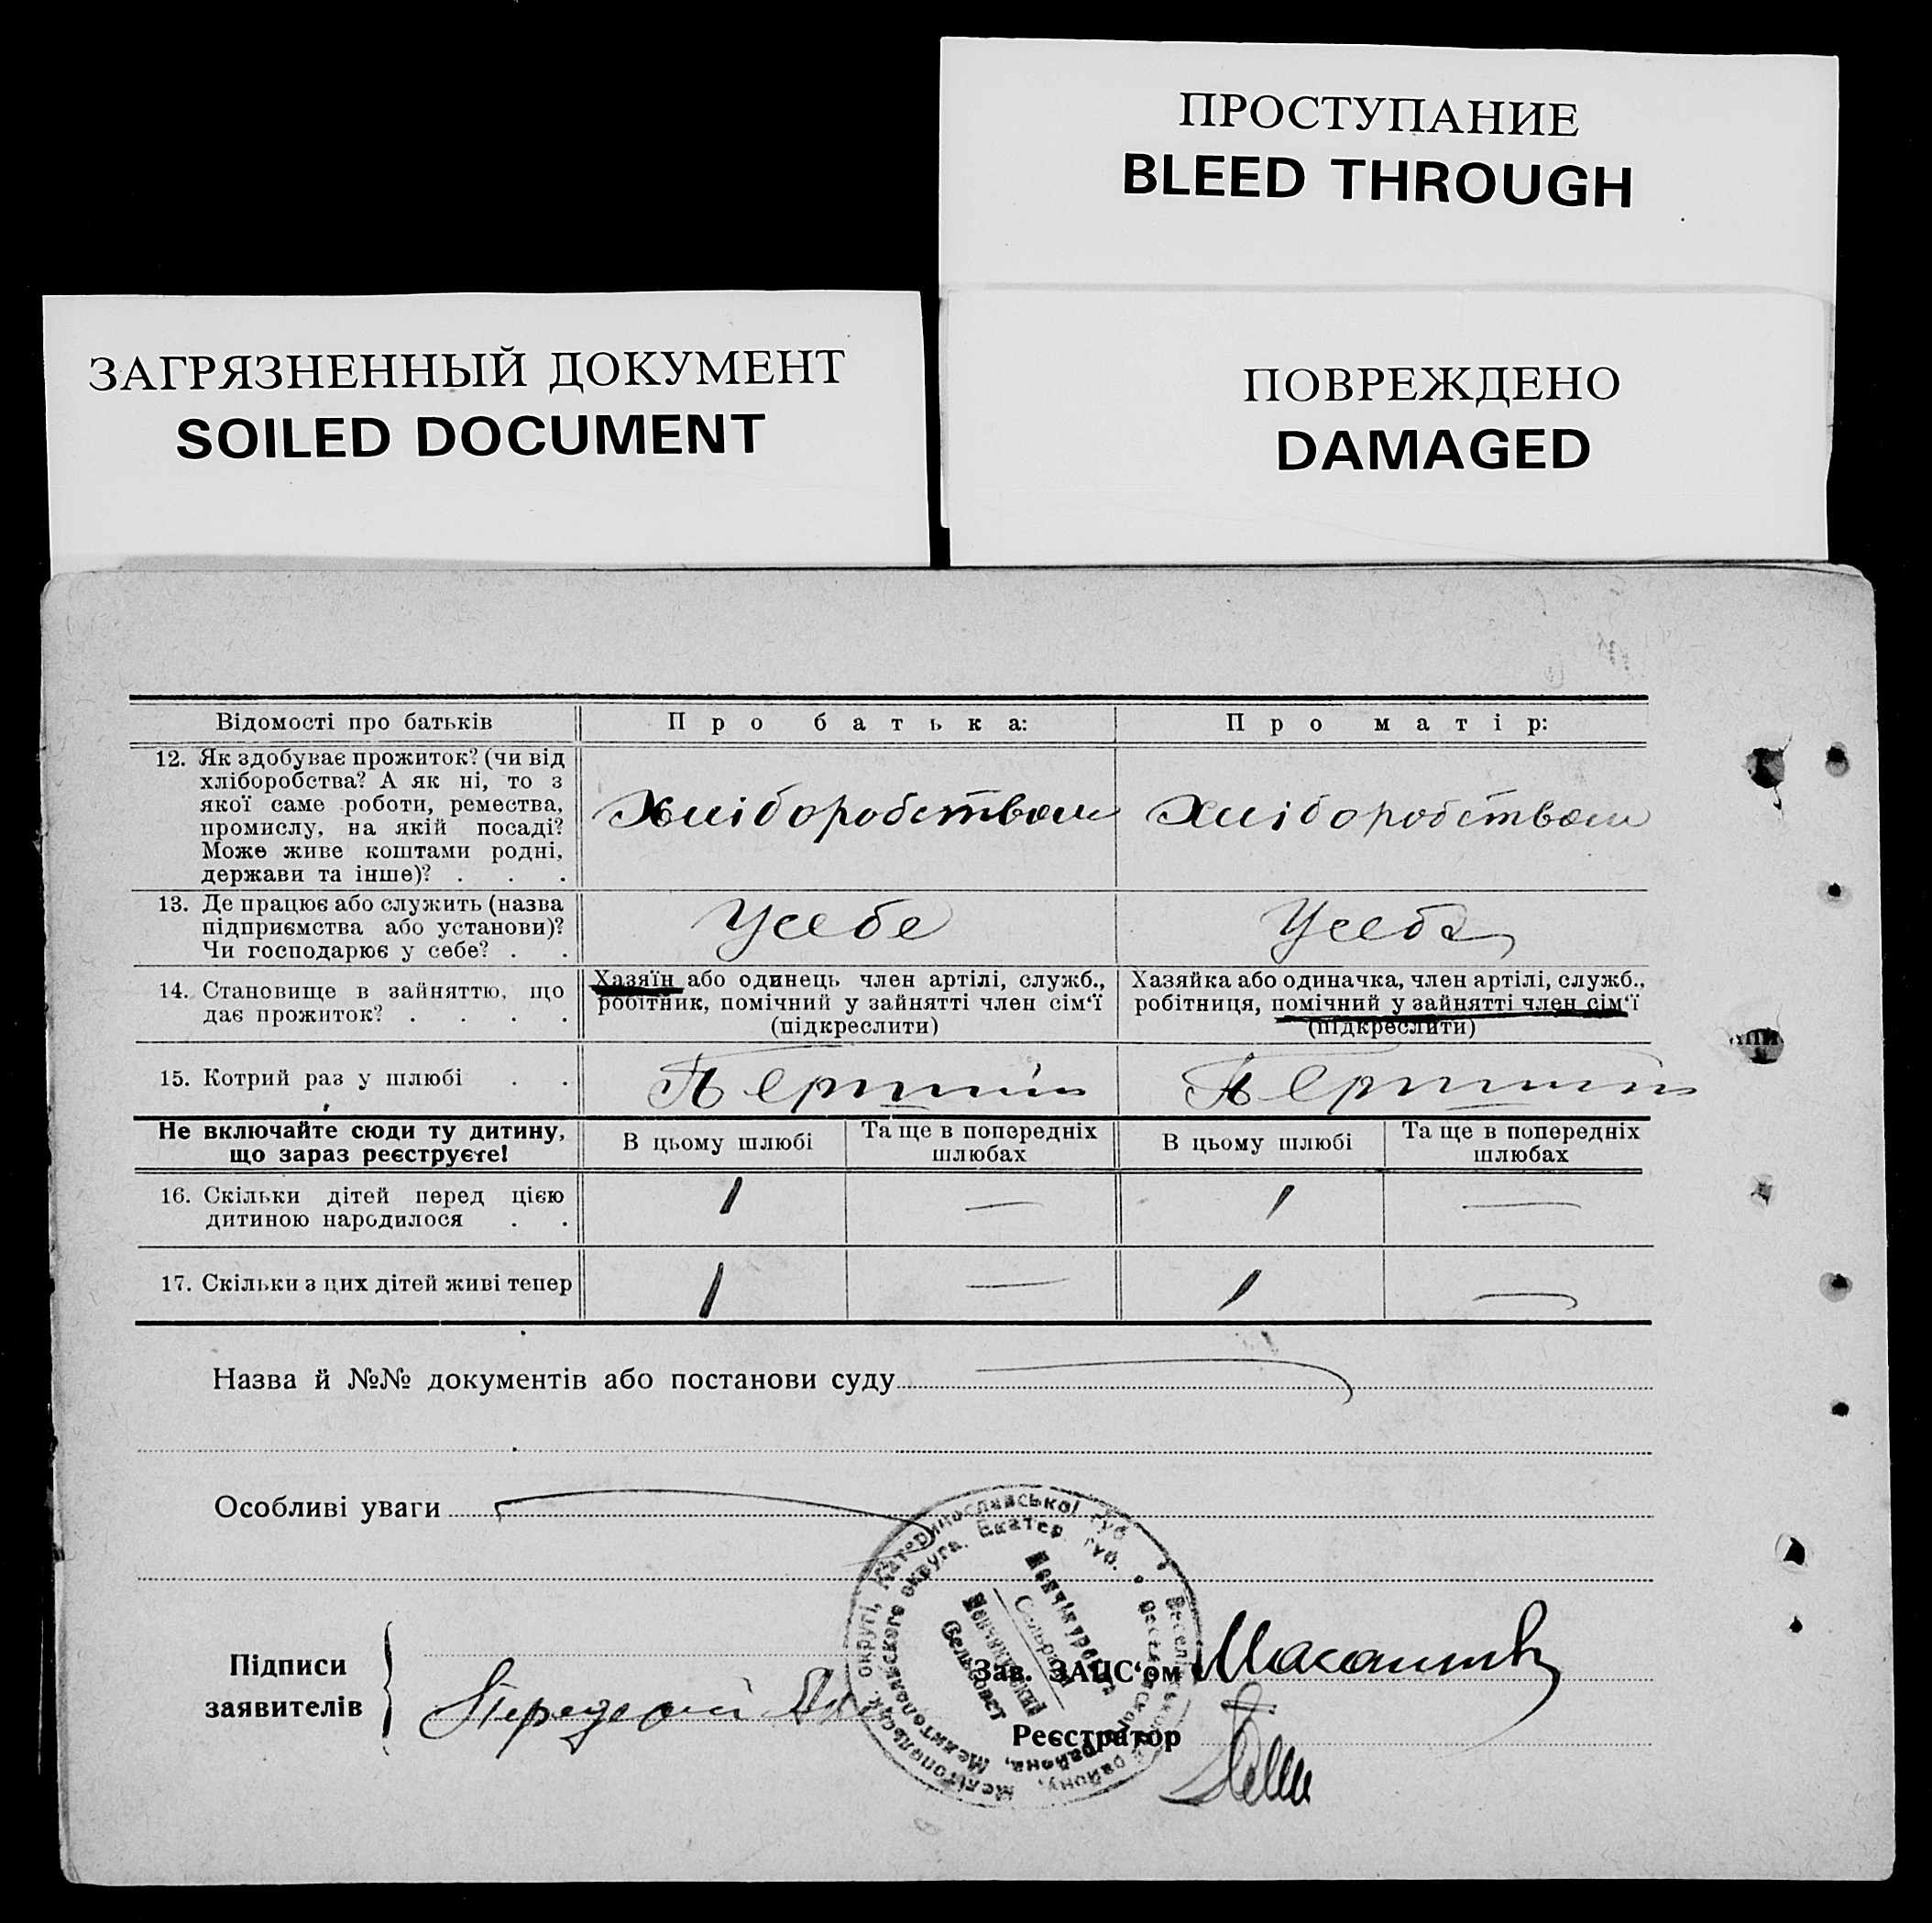 ПРОСТУПАНИЕ
BLEED THROUGH
ЗАГРЯЗНЕННЫЙ ДОКУМЕНТ
SOILED DOCUMENT
ПОВРЕЖДЕНО
DAMAGED
Відомості про батьків
Про батька:
Про матір:
12. Як здобуває прожиток? (чи від
хліборобства? А як ні, то з
якої саме роботи, ремества,
промислу, на якій посаді?
Може живе коштами родні,
держави та інше)? . . .
Хліборобством
Хліборобством
13. Де працює або служить (назва
підприємства або установи)?
Чи господарює у себе? . .
Усебе
Усебе
14. Становище в зайняттю, що
дає прожиток? . . . .
Хазяїн або одинець член артілі, служб.,
робітник, помічний у зайнятті член сім'ї
(підкреслити)
Хазяйка або одиначка, член артілі, служб.,
робітниця, помічний у зайнятті член сім'ї
(підкреслити)
15. Котрий раз у шлюбі . .
Перший
Перший
Не включайте сюди ту дитину,
що зараз реєструєте!
В цьому шлюбі
Та ще в попередніх
шлюбах
В цьому шлюбі
Та ще в попередніх
шлюбах
16. Скільки дітей перед цією
дитиною народилося . .
1
—
1
—
17. Скільки з цих дітей живі тепер
1
—
1
—
Назва й №№ документів або постанови суду
Особливі уваги
Підписи
заявителів
Зав. ЗАЦС'ом
Реєстратор
Мелітопольськ. округі, Катеринославської губ.
Мелитопольского округа, Екатер. губ.
району,
района,
Сельрада
Сельсовет